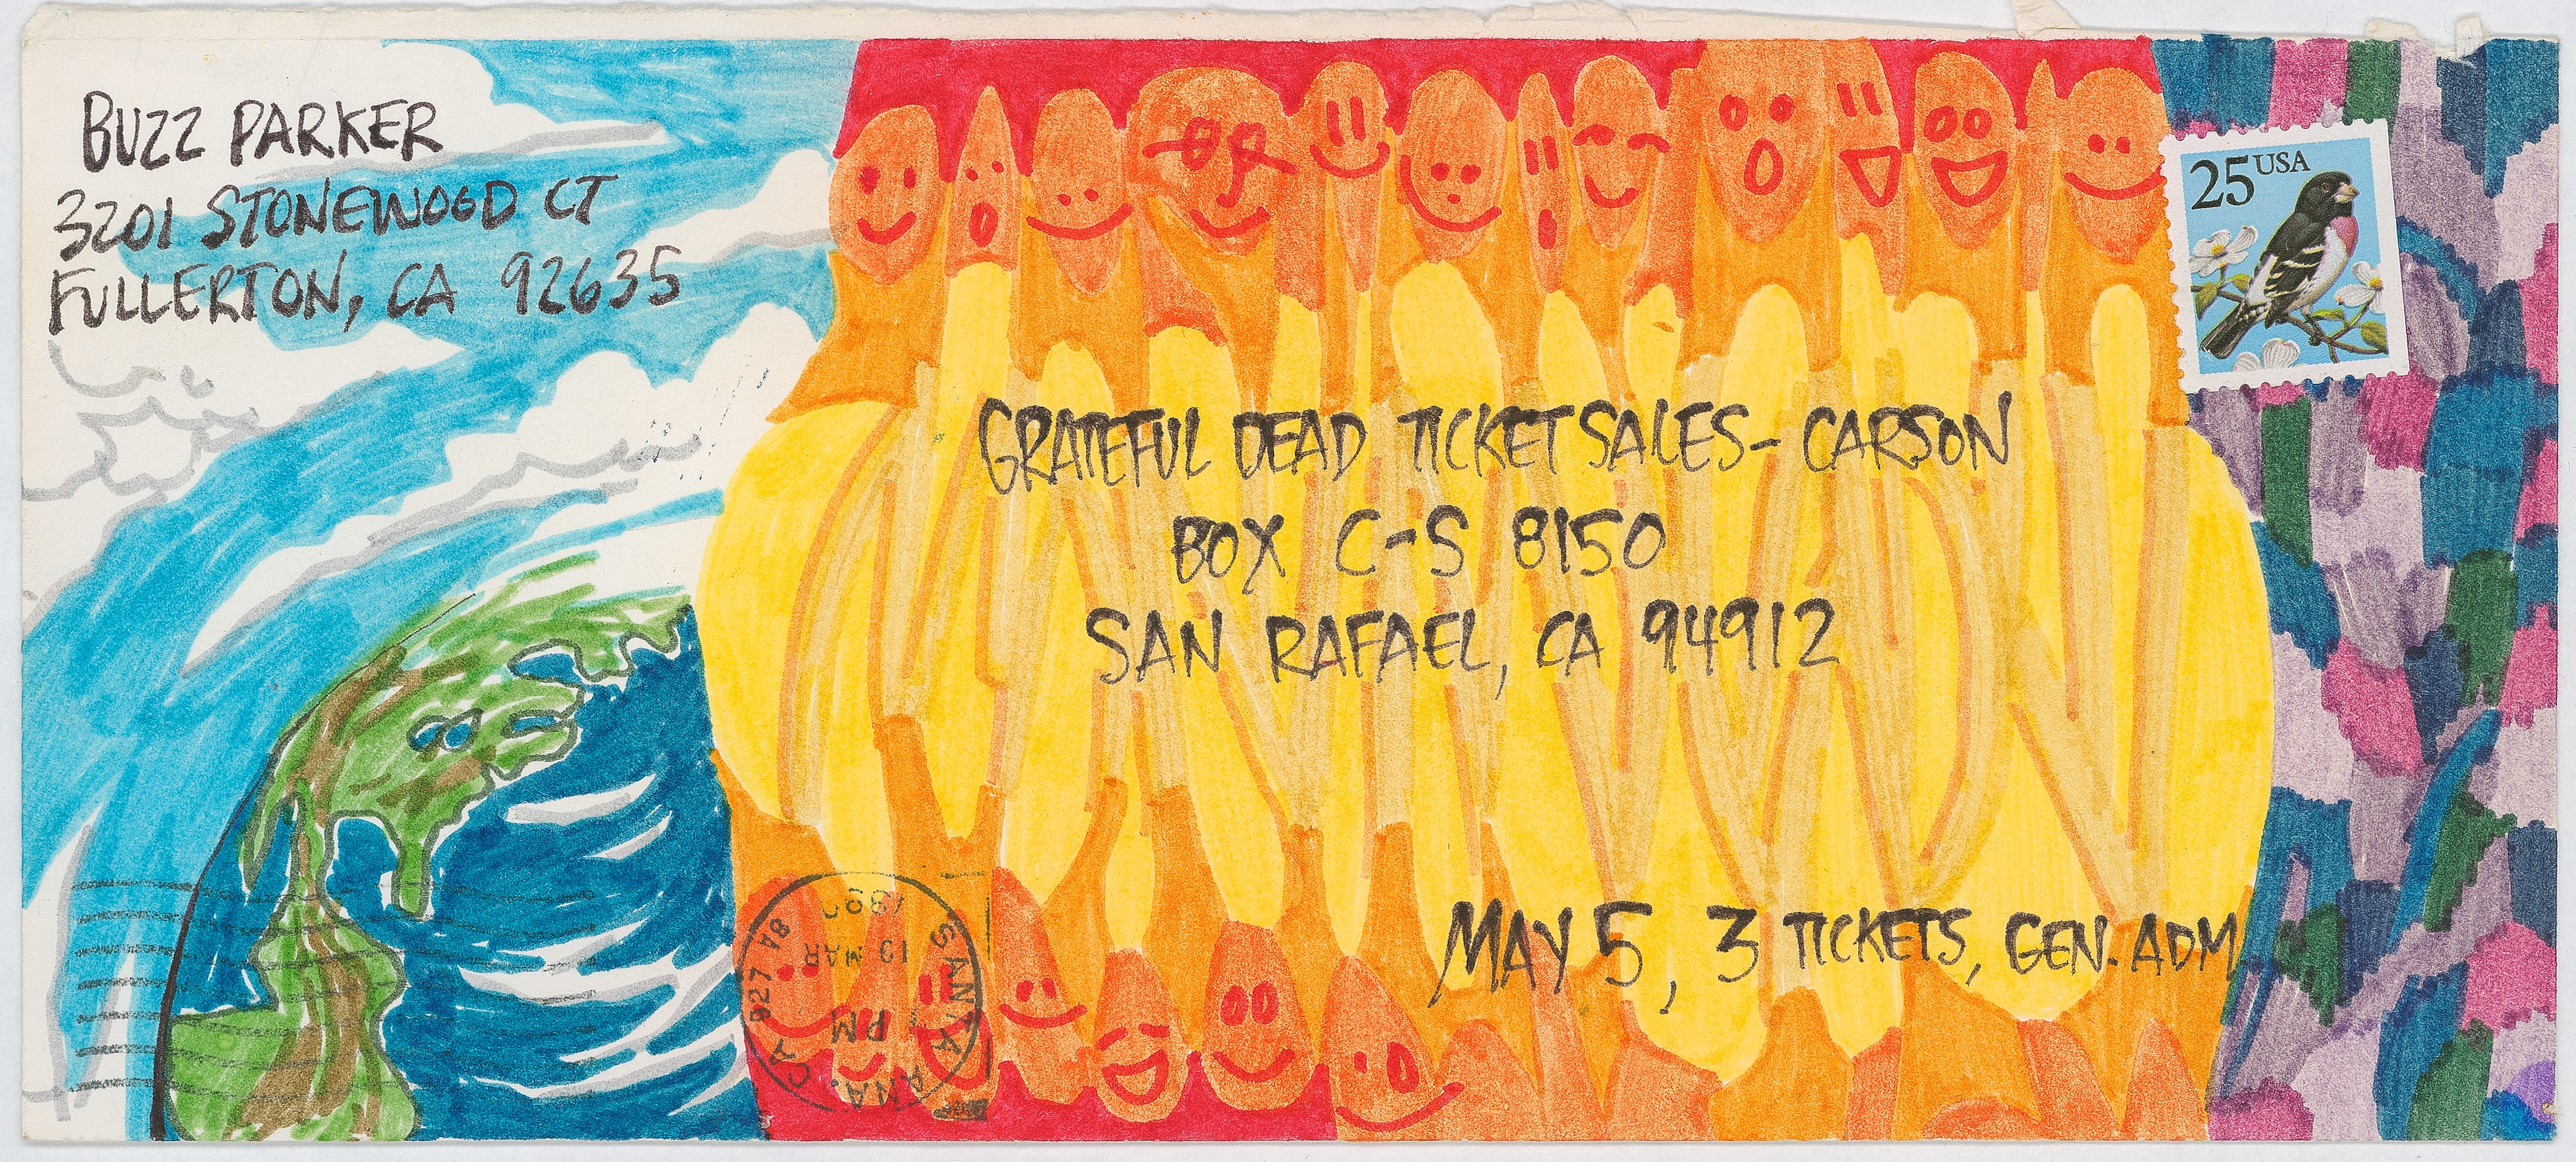 BUZZ PARKER
3201 STONEWOOD CT
FULLERTON, CA 92635
25 USA
GRATEFUL DEAD TICKET SALES - CARSON
BOX C-S 8150
SAN RAFAEL, CA 94912
MAY 5, 3 TICKETS, GEN. ADM
SANTA ANA, CA 927
PM
19 MAR
1990